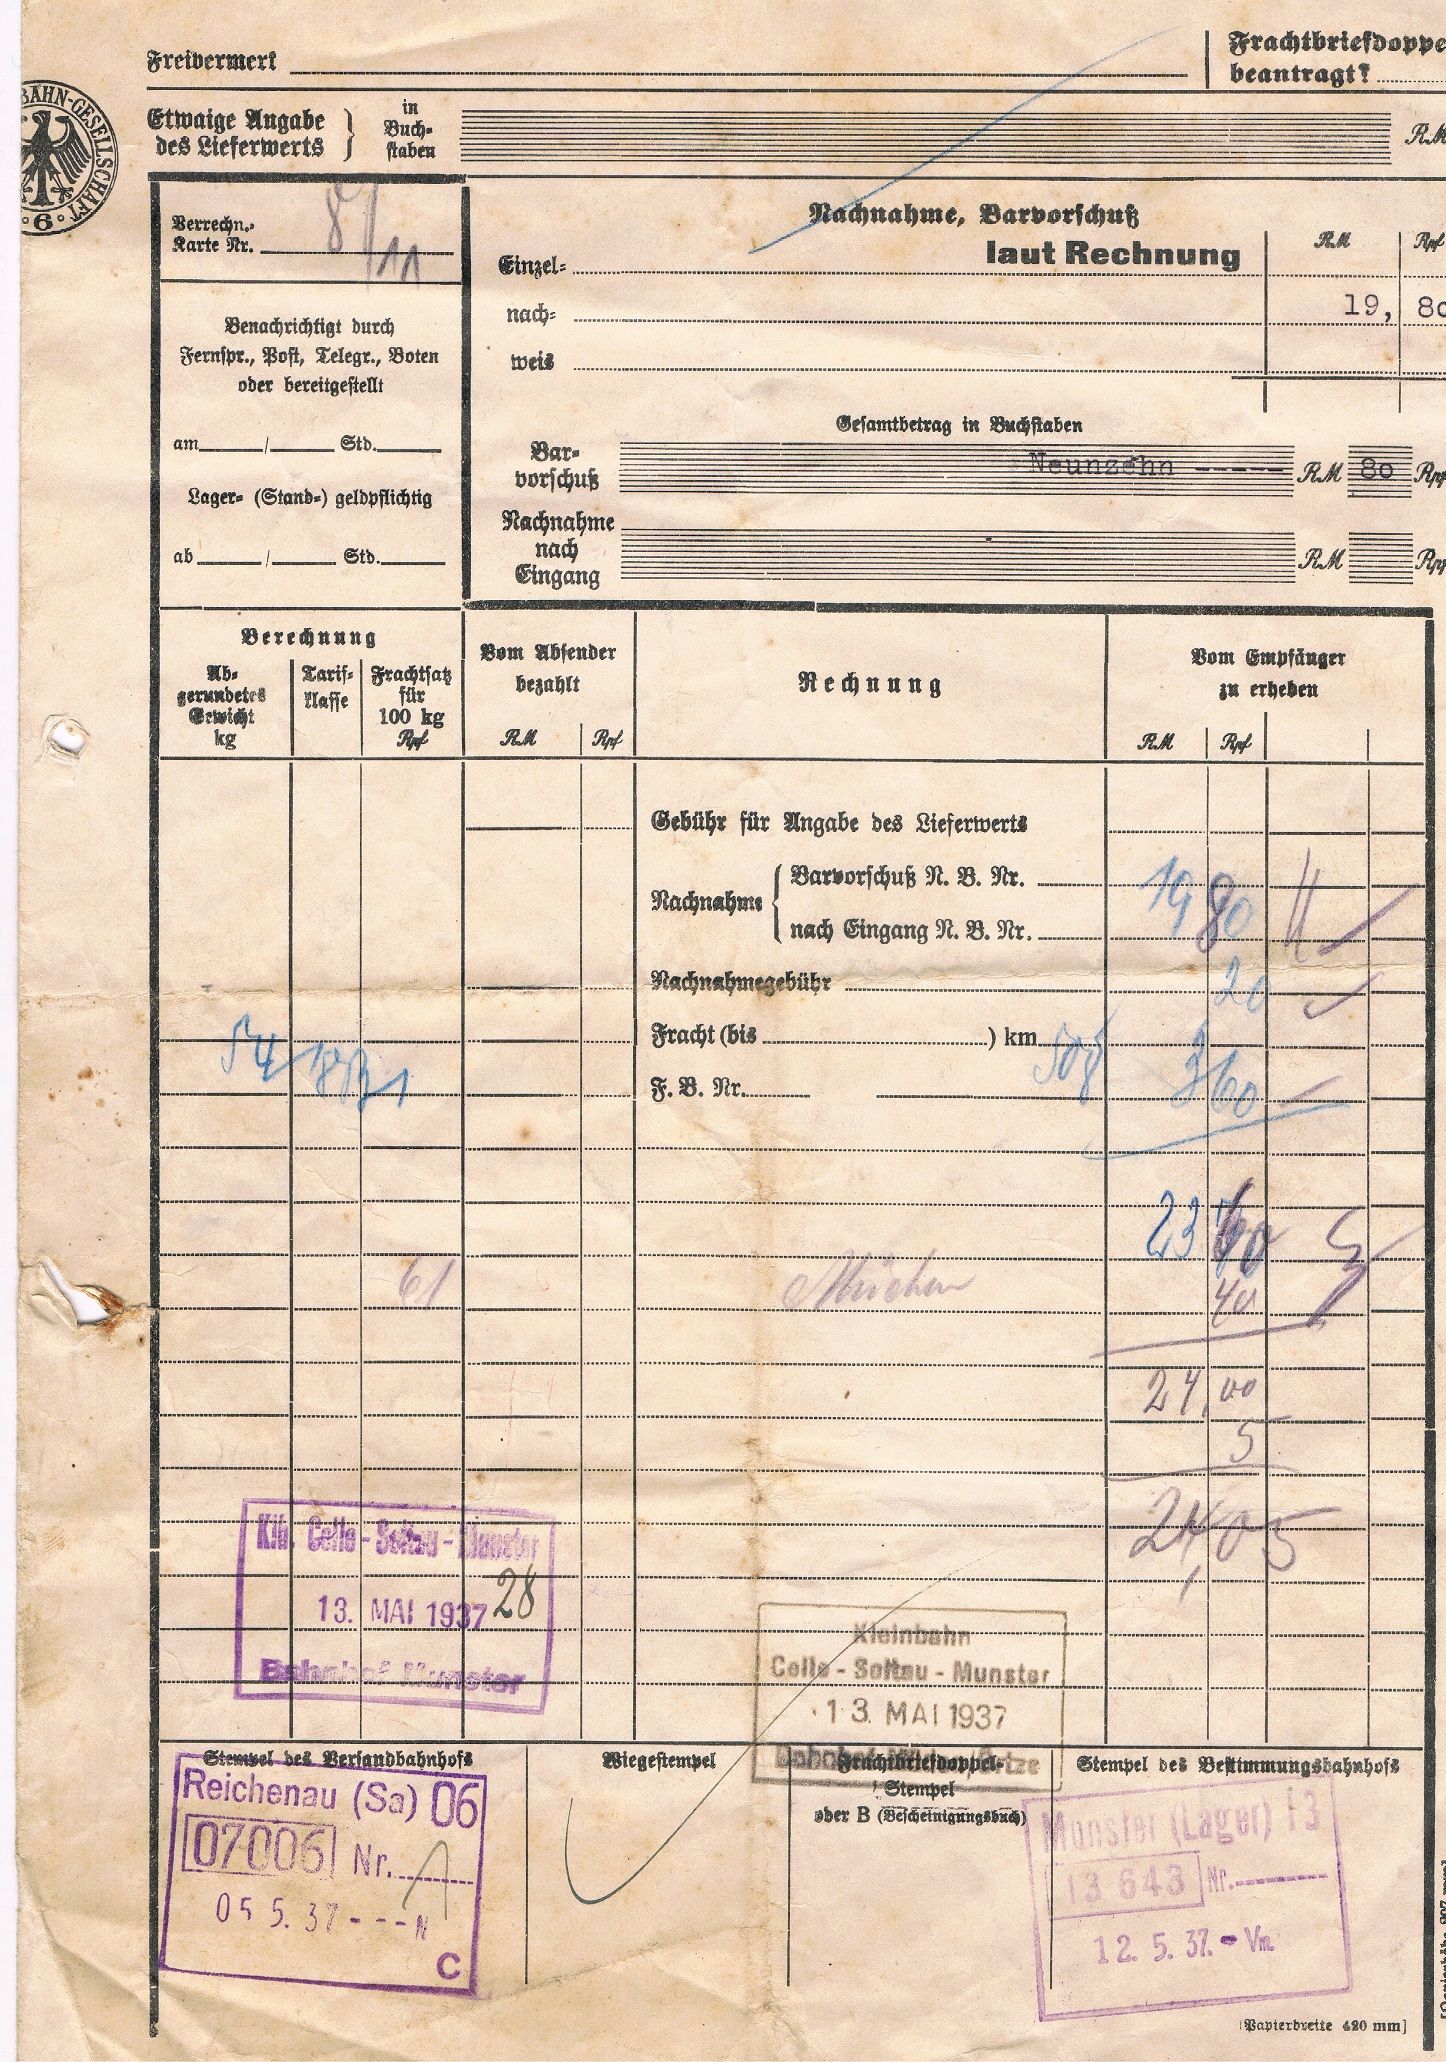 Freivermerk
Frachtbriefdoppe
beantragt?
BAHN-GESELLSCHAFT
6
Etwaige Angabe
des Lieferwerts
in
Buch-
staben
RM
Verrechn.-
Karte Nr.
Nachnahme, Barvorschuß
RM Rpf
Einzel- laut Rechnung
nach- 19, 80
weis
Benachrichtigt durch
Fernspr., Post, Telegr., Boten
oder bereitgestellt
am / Std.
Lager- (Stand-) geldpflichtig
ab / Std.
Gesamtbetrag in Buchstaben
Bar-
vorschuß
Neunzehn ----- RM 80 Rpf
Nachnahme
nach
Eingang
RM Rpf
Berechnung
Ab-
gerundetes
Gewicht
kg
Tarif-
klasse
Frachtsatz
für
100 kg
Rpf
Vom Absender
bezahlt
RM Rpf
Rechnung
Vom Empfänger
zu erheben
RM Rpf
Gebühr für Angabe des Lieferwerts
Nachnahme
Barvorschuß N. B. Nr.
19 80
nach Eingang N. B. Nr.
Nachnahmegebühr 20
Fracht (bis ) km 508 3 60
54
F. B. Nr.
23 60
61 40
24,00
5
24 05
Klb. Celle - Soltau - Munster
13. MAI 1937 28
Bahnhof Munster
Kleinbahn
Celle - Soltau - Munster
13. MAI 1937
Stempel des Versandbahnhofs
Wiegestempel
Frachtbriefdoppel-
Stempel
oder B (Bescheinigungsbuch)
Stempel des Bestimmungsbahnhofs
Reichenau (Sa) 06
07006 Nr. 1
05 5. 37 - - - N
C
Munster (Lager) 13
13 643 Nr.
12. 5. 37. - Vm.
[Papierbreite 420 mm]